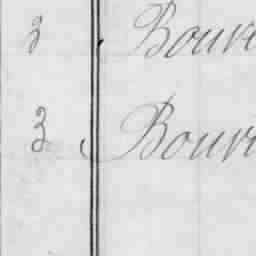 3 Bour
3 Bour